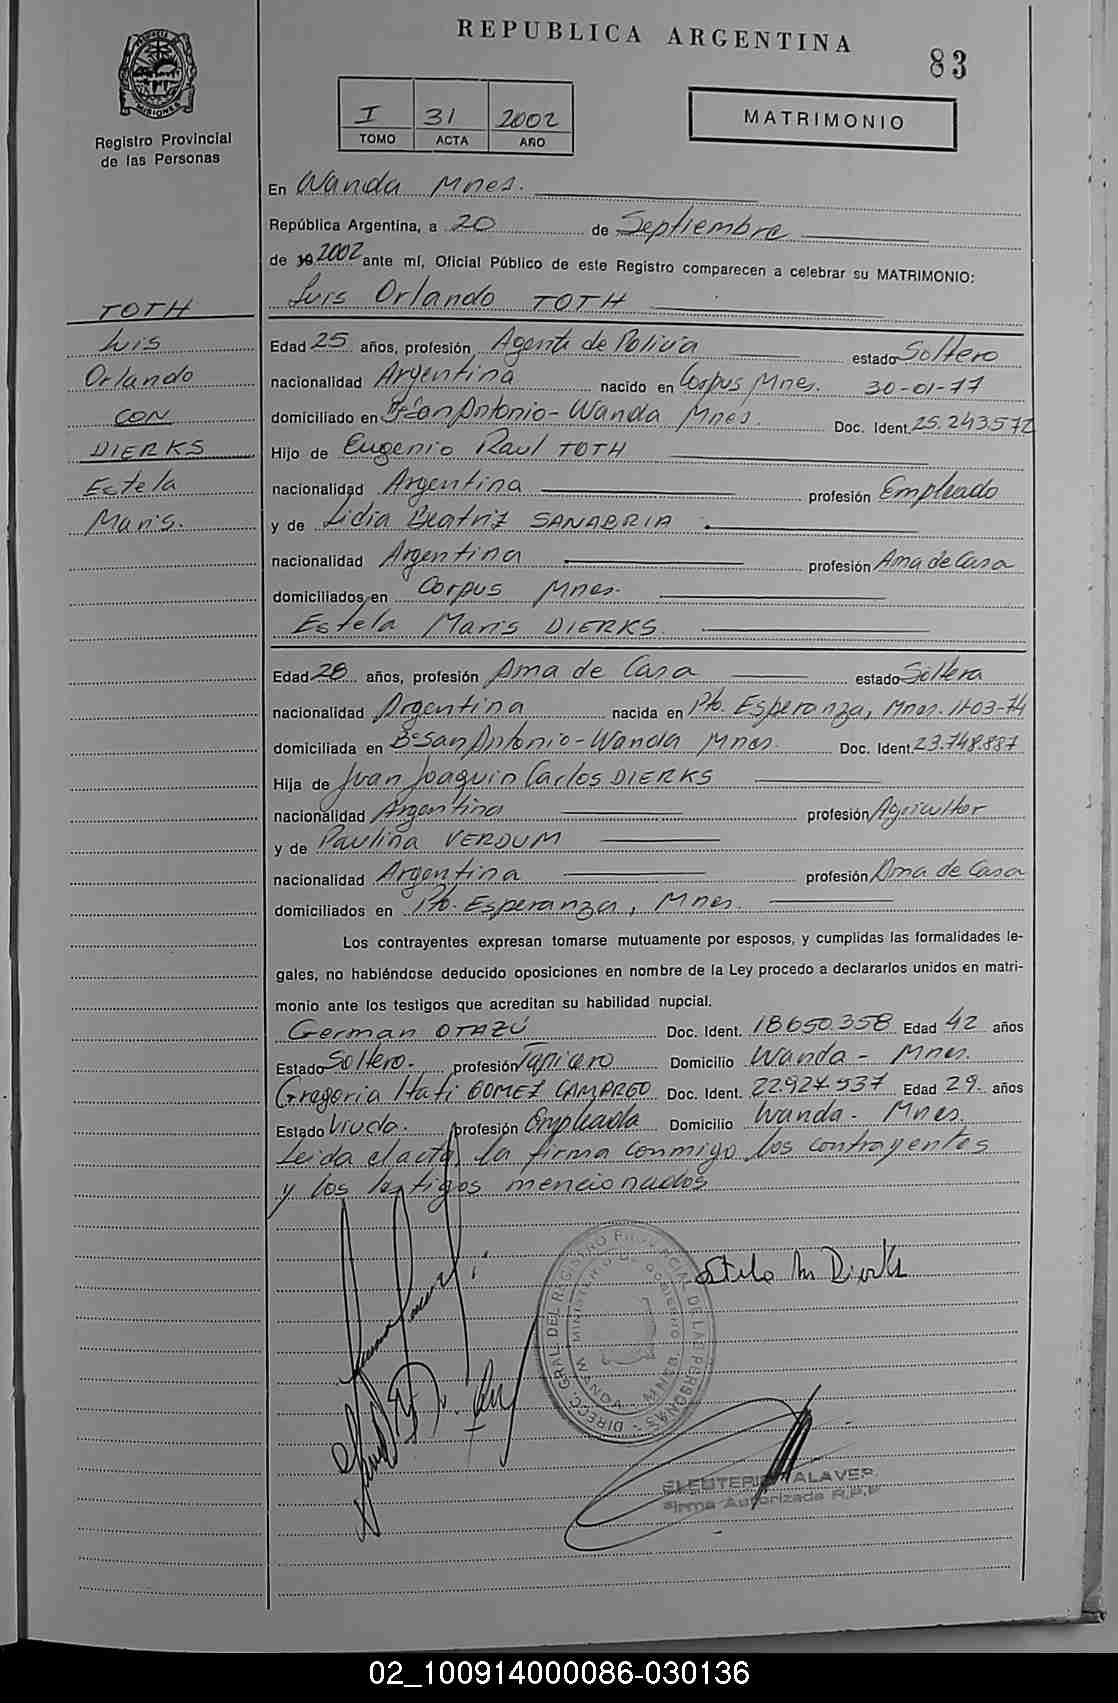 REPUBLICA ARGENTINA
83
MISIONES
Registro Provincial
de las Personas
I 31 2002
TOMO ACTA AÑO
MATRIMONIO
En Wanda Mnes.
República Argentina, a 20 de Septiembre
de 2002 ante mí, Oficial Público de este Registro comparecen a celebrar su MATRIMONIO:
Luis Orlando TOTH
TOTH
Luis
Orlando
CON
DIERKS
Estela
Maris.
Edad 25 años, profesión Agente de Policia estado Soltero
nacionalidad Argentina nacido en Corpus Mnes. 30-01-77
domiciliado en Bº San Antonio - Wanda Mnes. Doc. Ident. 25.243.572
Hijo de Eugenio Raul TOTH
nacionalidad Argentina profesión Empleado
y de Lidia Beatriz SANABRIA
nacionalidad Argentina profesión Ama de Casa
domiciliados en Corpus Mnes.
Estela Maris DIERKS.
Edad 28 años, profesión Ama de Casa estado Soltera
nacionalidad Argentina nacida en Pto. Esperanza, Mnes. 1-03-74
domiciliada en Bº San Antonio - Wanda Mnes. Doc. Ident. 23.748.887
Hija de Juan Joaquin Carlos DIERKS
nacionalidad Argentina profesión Agricultor
y de Paulina VERDUM
nacionalidad Argentina profesión Ama de Casa
domiciliados en Pto. Esperanza, Mnes.
Los contrayentes expresan tomarse mutuamente por esposos, y cumplidas las formalidades le-
gales, no habiéndose deducido oposiciones en nombre de la Ley procedo a declararlos unidos en matri-
monio ante los testigos que acreditan su habilidad nupcial.
German OTAZÚ Doc. Ident. 18650.358 Edad 42 años
Estado Soltero. profesión Tapicero Domicilio Wanda - Mnes.
Gregoria Itati GOMEZ CAMARGO Doc. Ident. 22927.537 Edad 29. años
Estado Viuda. profesión Empleada Domicilio Wanda - Mnes.
Leida el acta, la firma conmigo los contrayentes
y los testigos mencionados
DIRECC. GRAL. DEL REGISTRO PROVINCIAL DE LAS PERSONAS
MINISTERIO DE GOBIERNO
WANDA - MNES.
Estela M Dierks
ELEUTERIO ALAVER
Firma Autorizada R.P.P
02_100914000086-030136